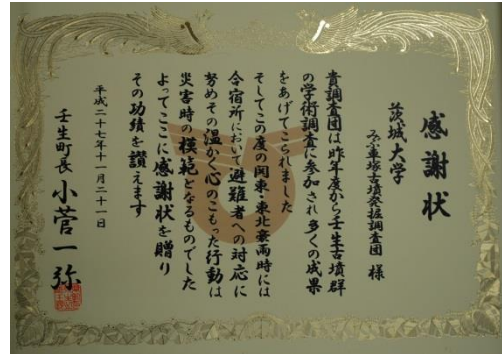 感謝状
茨城大学
みぶ車塚古墳発掘調査団 様
貴調査団は昨年度から壬生古墳群
の学術調査に参加され多くの成果
をあげてこられました
そしてこの度の関東・東北豪雨時には
合宿所において避難者への対応に
努めその温かく心のこもった行動は
災害時の模範となるものでした
よってここに感謝状を贈り
その功績を讃えます
平成二十七年十一月二十一日
壬生町長 小菅一弥